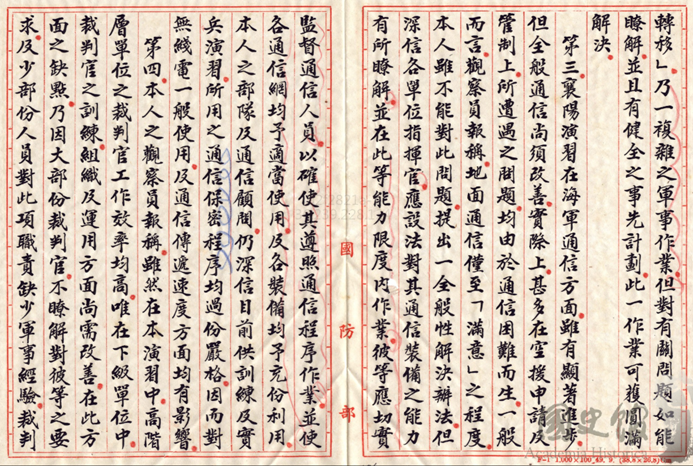 轉移」乃一複雜之軍事作業。但對有關問題如能
瞭解。並且有健全之事先計劃。此一作業可獲圓滿
解決。
第三。襄陽演習在海軍通信方面雖有顯著進步。
但全般通信尚須改善。實際上甚多在空援申請及
管制上所遭遇之問題。均由於通信困難而生。一般
而言。觀察員報稱。地面通信僅至「滿意」之程度。
本人雖不能對此問題提出一全般性解決辦法。但
深信各單位指揮官應設法對其通信裝備之能力
有所瞭解。並在此等能力限度內作業。彼等應切實
國防部
監督通信人員。以確使其遵照通信程序作業。並使
各通信網均予適當使用。及各裝備均予充份利用。
本人之部隊及通信顧問。仍深信目前供訓練及實
兵演習所用之通信保密程序均過份嚴格。因而對
無綫電一般使用及通信傳遞速度方面均有影響。
第四。本人之觀察員報稱。雖然在本演習中。高階
層單位之裁判官工作效率均高。唯在下級單位中
裁判官之訓練。組織及運用方面尚需改善。在此方
面之缺點。乃因大部份裁判官不瞭解對彼等之要
求。及少部份人員對此項職責缺少軍事經驗。裁判
國史館
Academia Historica